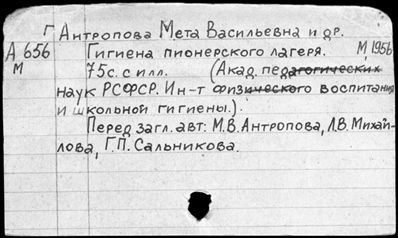 Г Антропова Мета Васильевна и др.
А 656 Гигиена пионерского лагеря. М, 1956
М 75с. с илл. (Акад. педагогических
наук РСФСР. Ин-т физического воспитания
и школьной гигиены.).
Перед загл. авт: М.В. Антропова, Л.В. Михай-
лова, Г.П. Сальникова.